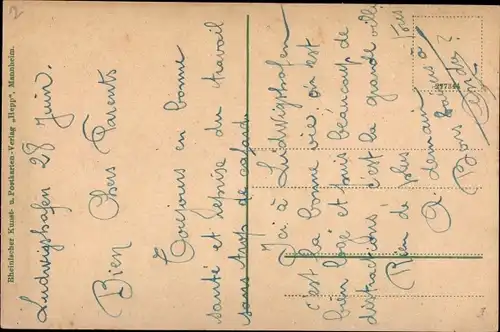 Rheinischer Kunst- u. Postkarten-Verlag „Hepp", Mannheim.
Ludwigshafen 28 Juin.
Bien Chers Parents
Toujours en bonne
santé et reprise du travail
sans trop de cafard
Ici à Ludwigshafen
c'est la bonne vie on est
bien logé et puis beaucoup de
distractions c'est la grande ville
Rien de plus
A demain
Bons
277344